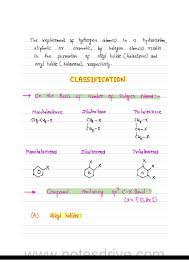 The replacement of hydrogen atom(s) in a hydrocarbon,
aliphatic or aromatic, by halogen atom(s) results
in the formation of alkyl halide (haloalkane) and
aryl halide (haloarene), respectively.
CLASSIFICATION
On the Basis of Number of Halogen Atoms:-
Monohaloalkane Dihaloalkane Trihaloalkane
CH₃CH₂-X CH₂-X CH₂-X
CH₂-X CH-X
CH₂-X
Monohaloarene Dihaloarene Trihaloarene
X X X
X X
X
Compound Containing sp³ C-X Bond
(A) Alkyl halides:
www.notesdrive.com